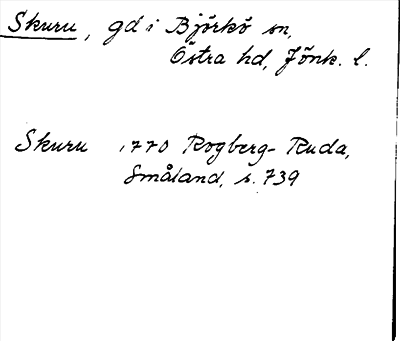 Skuru, gd i Björkö sn,
Östra hd, Jönk. l.
Skuru 1770 Rogberg-Ruda,
Småland, s. 739